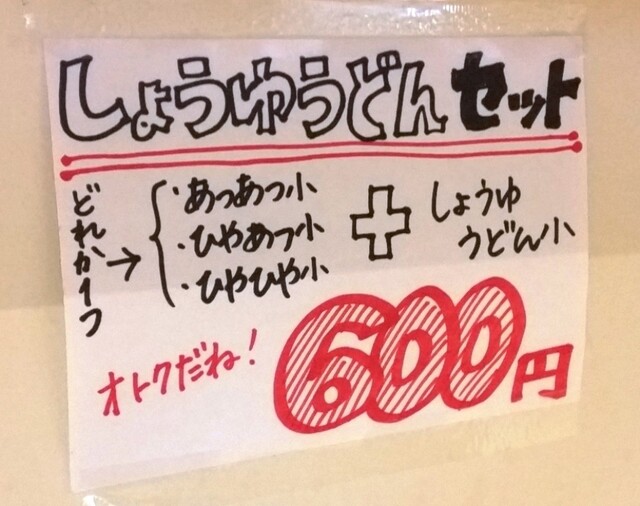 しょうゆうどんセット
どれか1つ
→
・あつあつ小
・ひやあつ小
・ひやひや小
+
しょうゆ
うどん小
オトクだね!
600円